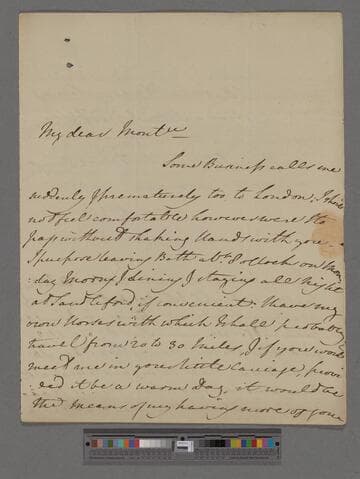 My dear Montu
Some Business calls me
suddenly & prematurely too, to London, I should
not feel comfortable however were I to
pass without shaking Hands with you.
I purpose leaving Bath abt 8 oClock on Mon
:day Morng & dining & staying all Night
at Sandleford, if convenient. I have my
own Horses with which I shall probably
travel from 20 to 30 Miles, & if you would
meet me in your little Carriage, provi
:ded it be a warm Day, it would be
the means of my having more of your